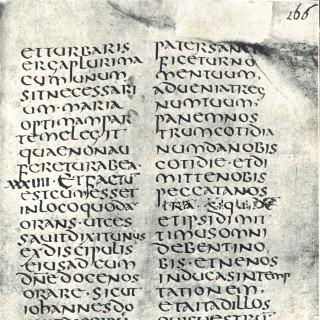 ETTURBARIS
ERGAPLURIMA
CUMUNUM
SITNECESSARI
UM·MARIA
OPTIMAMPAR
TEMELEGIT
QUAENONAU
FERETURABEA·
XXXIIII·ETFACTU
ESTCUMESSET
INLOCOQUODA
ORANS·UTCES
SAUITDIXITUNUS
EXDISCIPULIS
EIUSADEUM
DNEDOCENOS
ORARE·SICUT
IOHANNESDO
166
PATERSAN
FICETURNO
MENTUUM,
ADUENIATREG
NUMTUUM·
PANEMNOS
TRUMCOTIDIA
NUMDANOBIS
COTIDIE·ETDI
MITTENOBIS
PECCATANOS
TRA·
ETIPSIDIMIT
TIMUSOMNI
DEBENTINO
BIS·ETNENOS
INDUCASINTEMP
TATIONEM,
ETAITADILLOS